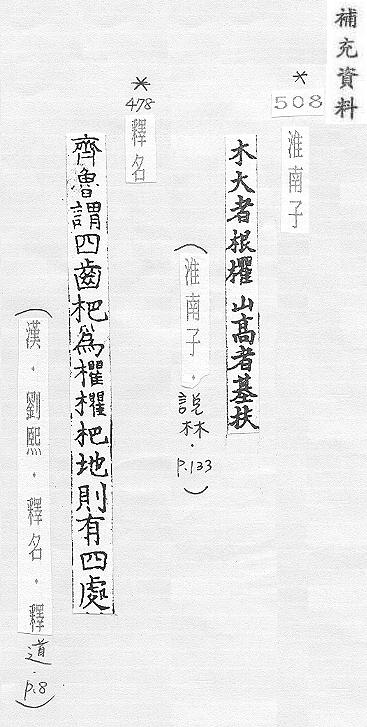 補充資料
*
508
淮南子
木大者根欋山高者基扶
(淮南子.說林.p.133)
*
478
釋名
齊魯謂四齒杷為欋欋杷地則有四處
(漢.劉熙.釋名.釋道.p.8)